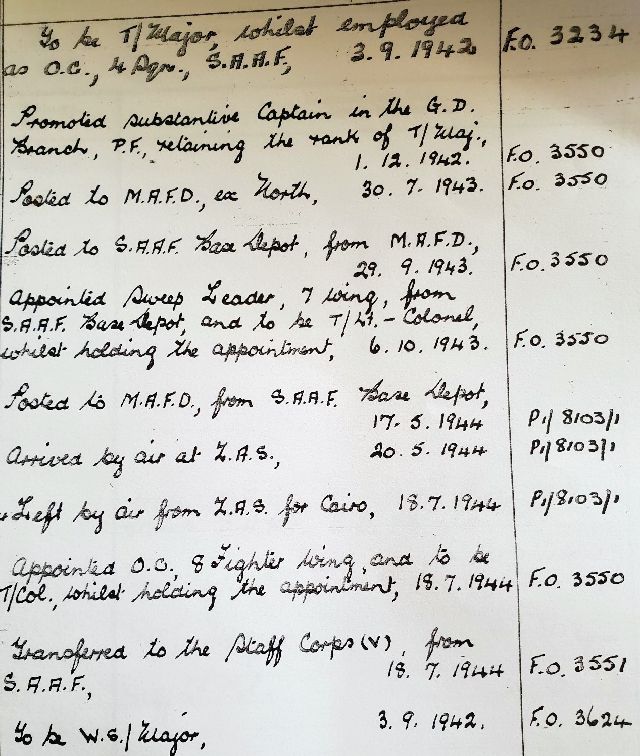 To be T/Major, whilst employed
as O.C., 4 Sqn., S.A.A.F., 3.9.1942 F.O. 3234
Promoted substantive Captain in the G.D.
Branch, P.F., retaining the rank of T/Maj.,
1.12.1942. F.O. 3550
Posted to M.A.F.D., ex North, 30.7.1943. F.O. 3550
Posted to S.A.A.F. Base Depot, from M.A.F.D.,
29.9.1943. F.O. 3550
Appointed Sweep Leader, 7 Wing, from
S.A.A.F. Base Depot, and to be T/Lt.-Colonel,
whilst holding the appointment, 6.10.1943. F.O. 3550
Posted to M.A.F.D., from S.A.A.F. Base Depot,
17.5.1944 P1/8103/1
Arrived by air at Z.A.S., 20.5.1944 P1/8103/1
Left by air from Z.A.S. for Cairo, 18.7.1944 P1/8103/1
Appointed O.C., 8 Fighter Wing, and to be
T/Col., whilst holding the appointment, 18.7.1944 F.O. 3550
Transferred to the Staff Corps (V), from
18.7.1944 F.O. 3551
S.A.A.F.,
3.9.1942. F.O. 3624
To be W.S./Major,